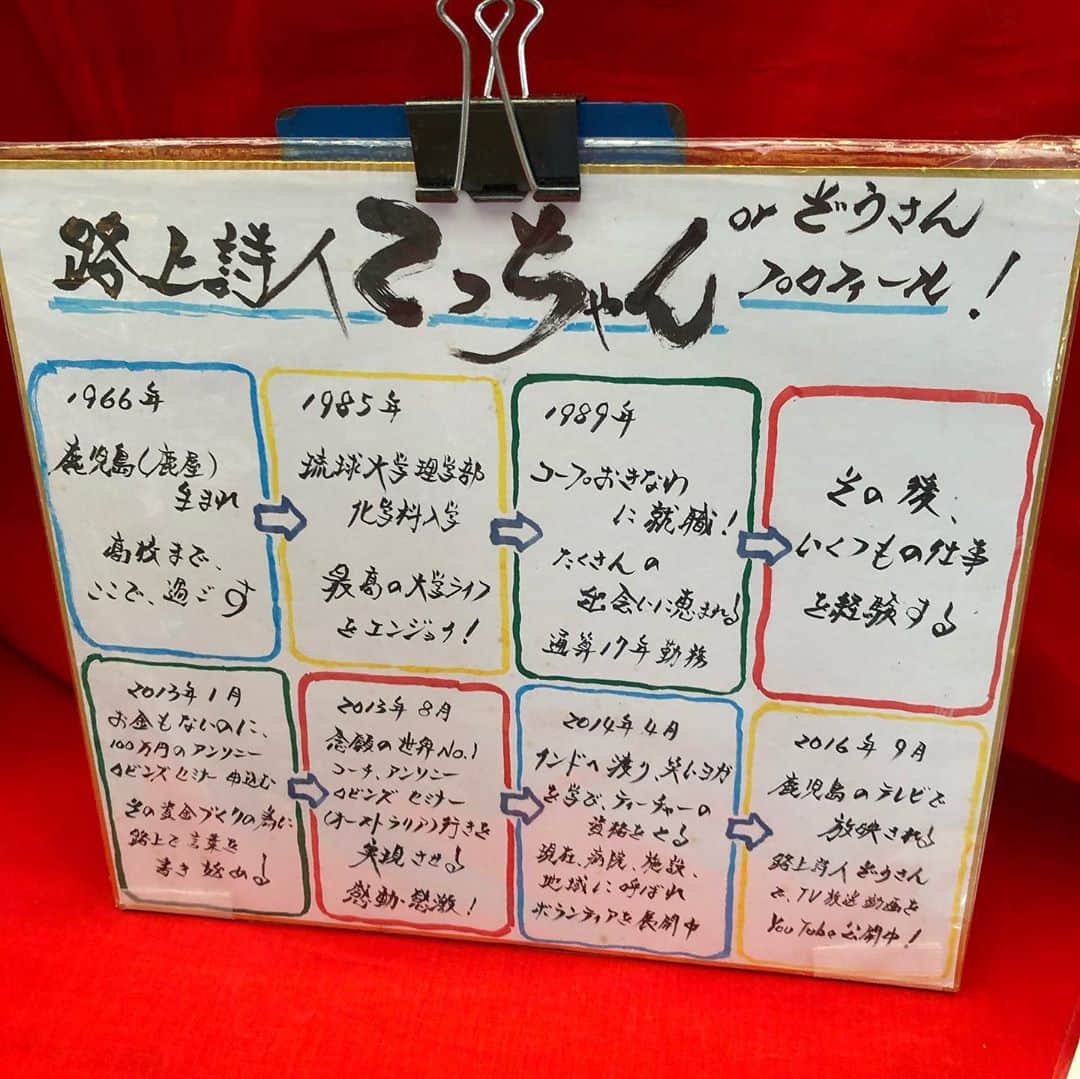 路上詩人てっちゃん or ぞうさん
プロフィール！
1966年
鹿児島(鹿屋)
生まれ
高校まで、
ここで、過ごす
1985年
琉球大学理学部
化学科入学
最高の大学ライフ
をエンジョイ！
1989年
コープおきなわ
に就職！
たくさんの
出会いに恵まれる
通算17年勤務
その後、
いくつもの仕事
を経験する
2013年1月
お金もないのに、
100万円のアンソニー
ロビンズセミナー申込む
その資金づくりの為に
路上で言葉を
書き始める
2013年8月
念願の世界No.1
コーチ、アンソニー
ロビンズセミナー
(オーストラリア)行きを
実現させる
感動・感激！
2014年4月
インドへ渡り、笑いヨガ
を学び、ティーチャーの
資格をとる
現在、病院、施設、
地域に呼ばれ
ボランティアを展開中
2016年9月
鹿児島のテレビで
放映される
路上詩人ぞうさん
で、TV放送動画を
YouTube公開中！